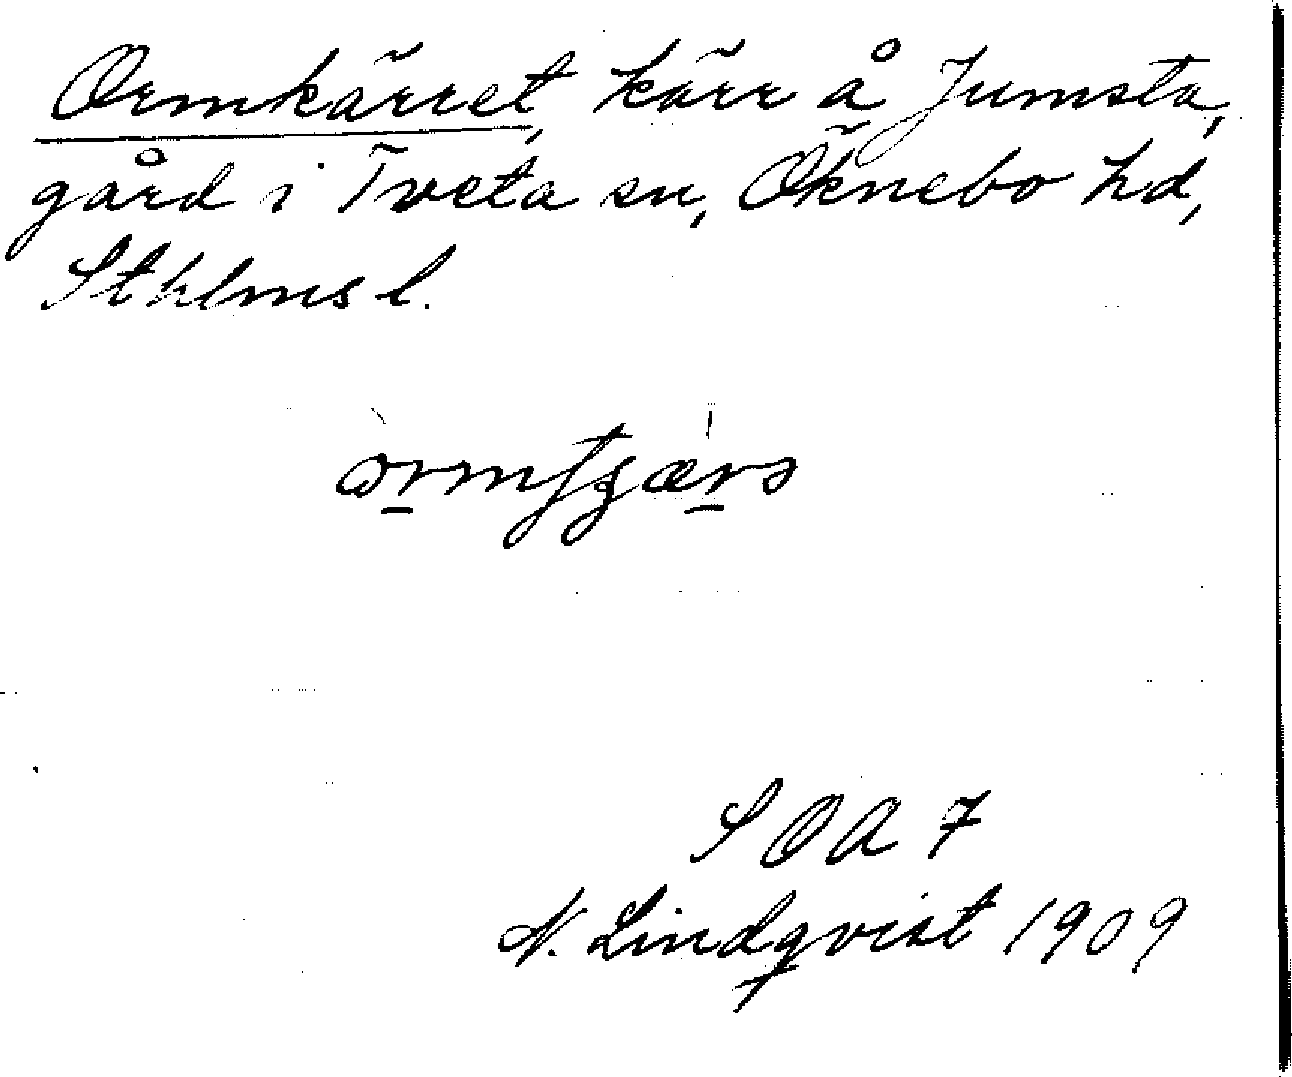 Ormkärret, kärr å Jumsta,
gård i Tveta sn, Öknebo hd,
Sthlms l.
SOA 7
N. Lindqvist 1909